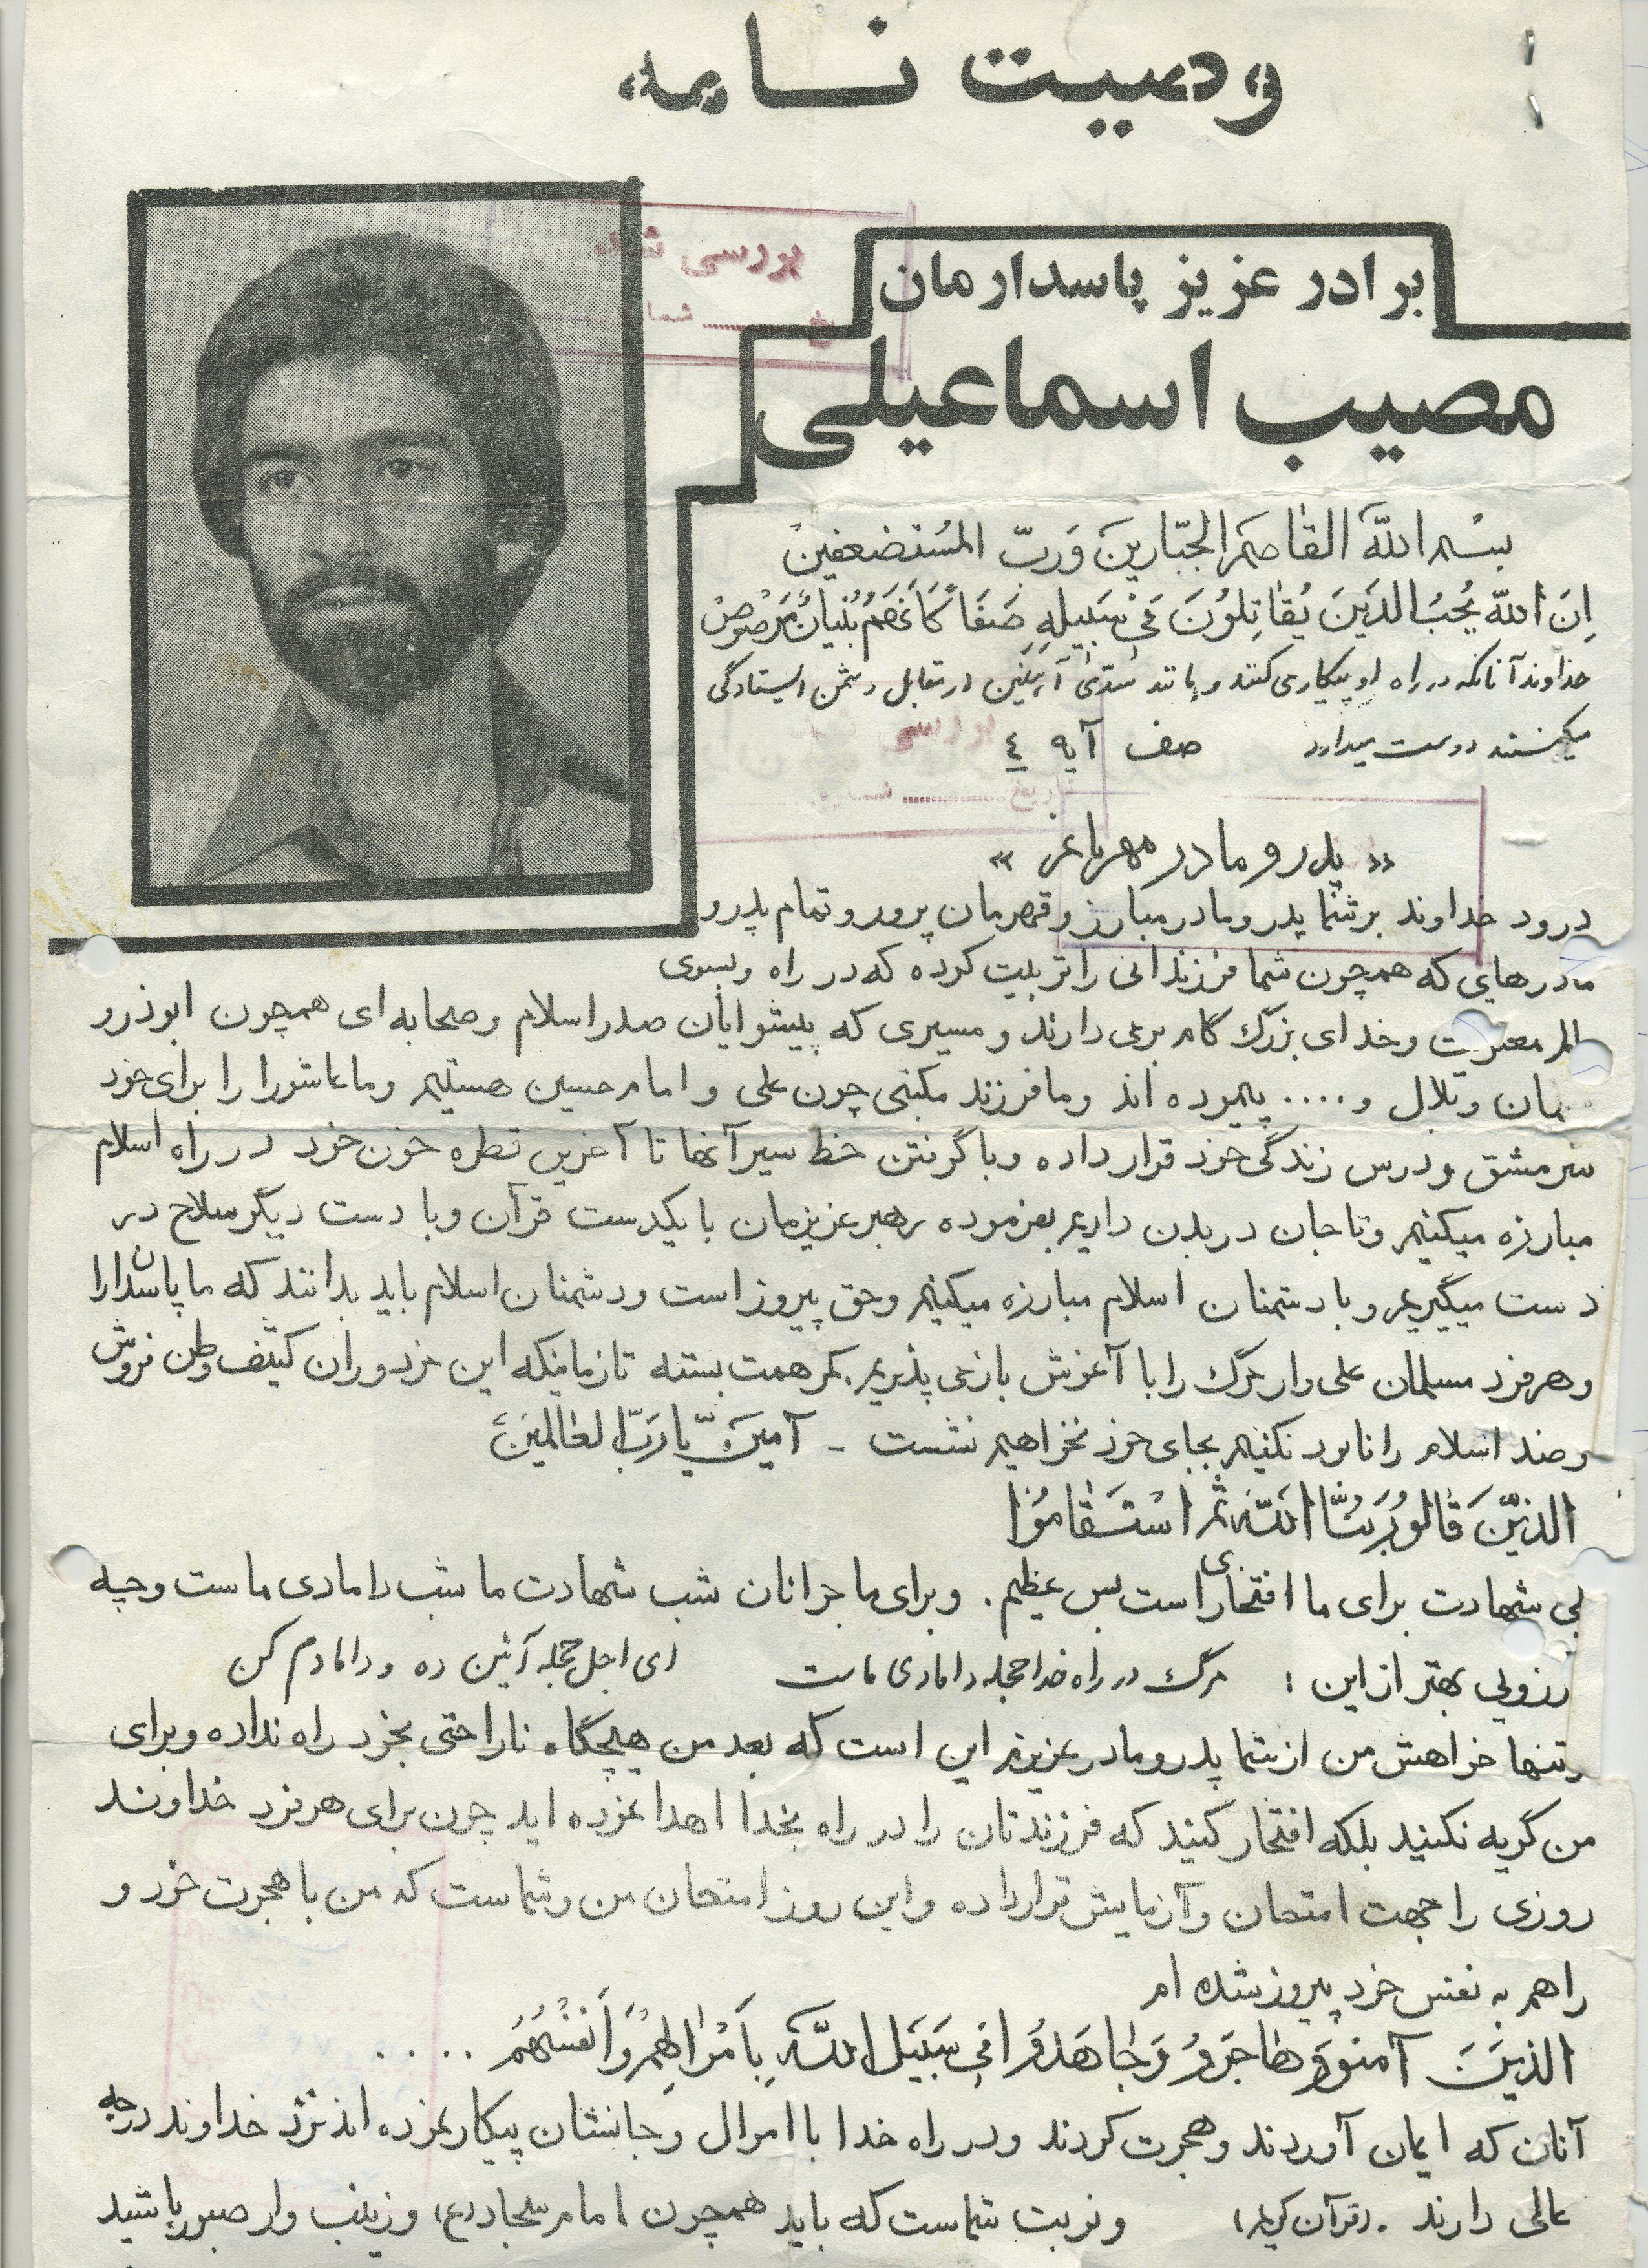 وصیت نامه
برادر عزیز پاسدارمان
مصیب اسماعیلی
بررسی
شما
بسْم اللهَ القاصم الجبّارینَ وَربّ المُستضعفینْ
اِنَ اللهّ یُحبُ الذَینَ یُقاتِلوُنَ فی سَبیلِهِ صَفَاً کَاَنَهُم بُنیانٌ مَرْصوصْ
خداوند آنانکه در راه او پیکار می کنند و مانند سدی آهنین در مقابل دشمن ایستادگی
میکنند دوست میدارد صف آیه ٤
بررسی
تاریخ ......... شماره
« پدر و مادر مهربانم »
درود خداوند بر شما پدر و مادر مبارز و قهرمان پرور و تمام پدر و
مادرهایی که همچون شما فرزندانی را تربیت کرده که در راه و بسوی
معنویت و خدای بزرگ گام برمی دارند و مسیری که پیشوایان صدر اسلام و صحابه ای همچون ابوذر و
و بلال و .... پیموده اند و ما فرزند مکتبی چون علی و امام حسین هستیم و ما عاشورا را برای خود
سرمشق و درس زندگی خود قرار داده و با گرفتن خط سیر آنها تا آخرین قطره خون خود در راه اسلام
مبارزه میکنیم و تا جان در بدن داریم بفرموده رهبر عزیزمان با یکدست قرآن و با دست دیگر سلاح در
دست میگیریم و با دشمنان اسلام مبارزه میکنیم و حق پیروز است و دشمنان اسلام باید بدانند که ما پاسداران
و هر فرد مسلمان علی وار مرگ را با آغوش باز می پذیریم. کمر همت بسته تا زمانیکه این مزدوران کثیف وطن فروش
و ضد اسلام را نابود نکنیم بجای خود نخواهیم نشست - آمینَ یا رَبّ العالمینَ
الذیّنَ قالوُ رَبُنّا اللهّ ثُمَ اسْتَقامُوا
شهادت برای ما افتخاری است بس عظیم. و برای ما جوانان شب شهادت ما شب دامادی ماست و چه
بهتر از این : مرگ در راه خدا حجله دامادی ماست ای اجل حجله آئین ده و دامادم کن
و تنها خواهش من از شما پدر و مادر عزیزم این است که بعد من هیچگاه ناراحتی بخود راه نداده و برای
من گریه نکنید بلکه افتخار کنید که فرزندتان را در راه بخدا اهدا نموده اید چون برای هر فرد خداوند
روزی را جهت امتحان و آزمایش قرار داده و این روز امتحان من و شماست که من با هجرت خود و
راهم به نفس خود پیروز شده ام
الذینَ آمنوُ وَ هاجَروُ وَ جاهَدوُا فی سَبیَل اللهّ بِاَمْوالِهِمْ وَ اَنفسُهُمُ ....
آنان که ایمان آوردند و هجرت کردند و در راه خدا با اموال و جانشان پیکار نموده اند نزد خداوند درجه
عالی دارند . (قرآن کریم) و نوبت شماست که باید همچون امام سجاد (ع) و زینب وار صبور باشید